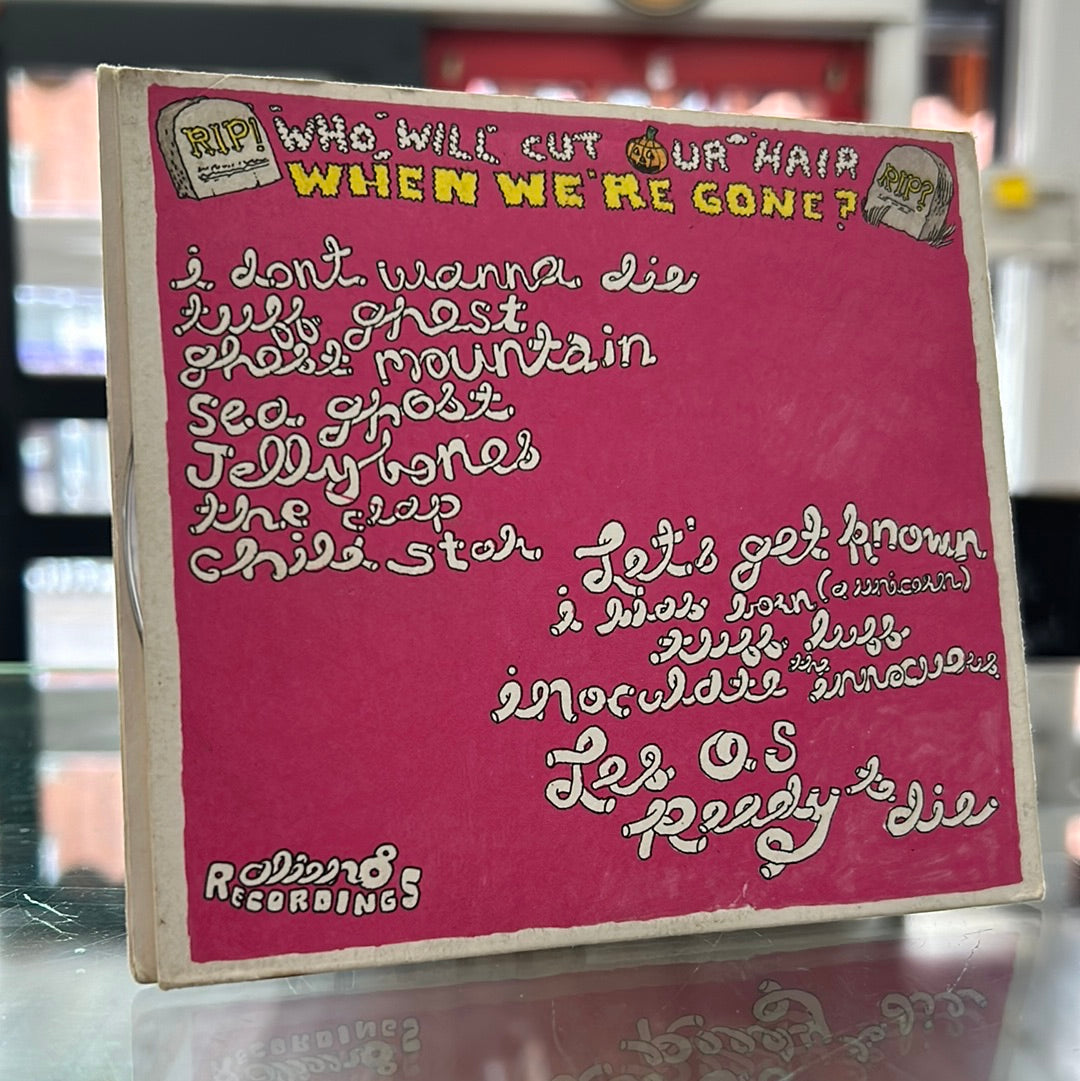 RIP!
"WHO" WILL CUT OUR HAIR
WHEN WE'RE GONE?
RIP?
i dont wanna die
tuff ghost
ghost mountain
sea ghost
Jellybones
the clap
child star
Let's get known
i was born (a unicorn)
tuff luff
inoculate the innocuous
Les Os
Ready to die
alien8
RECORDINGS